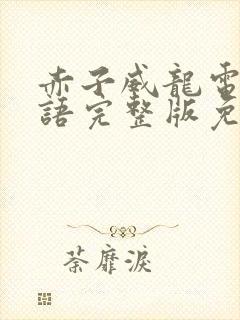 赤子威龍電
語完整版免
荼靡淚